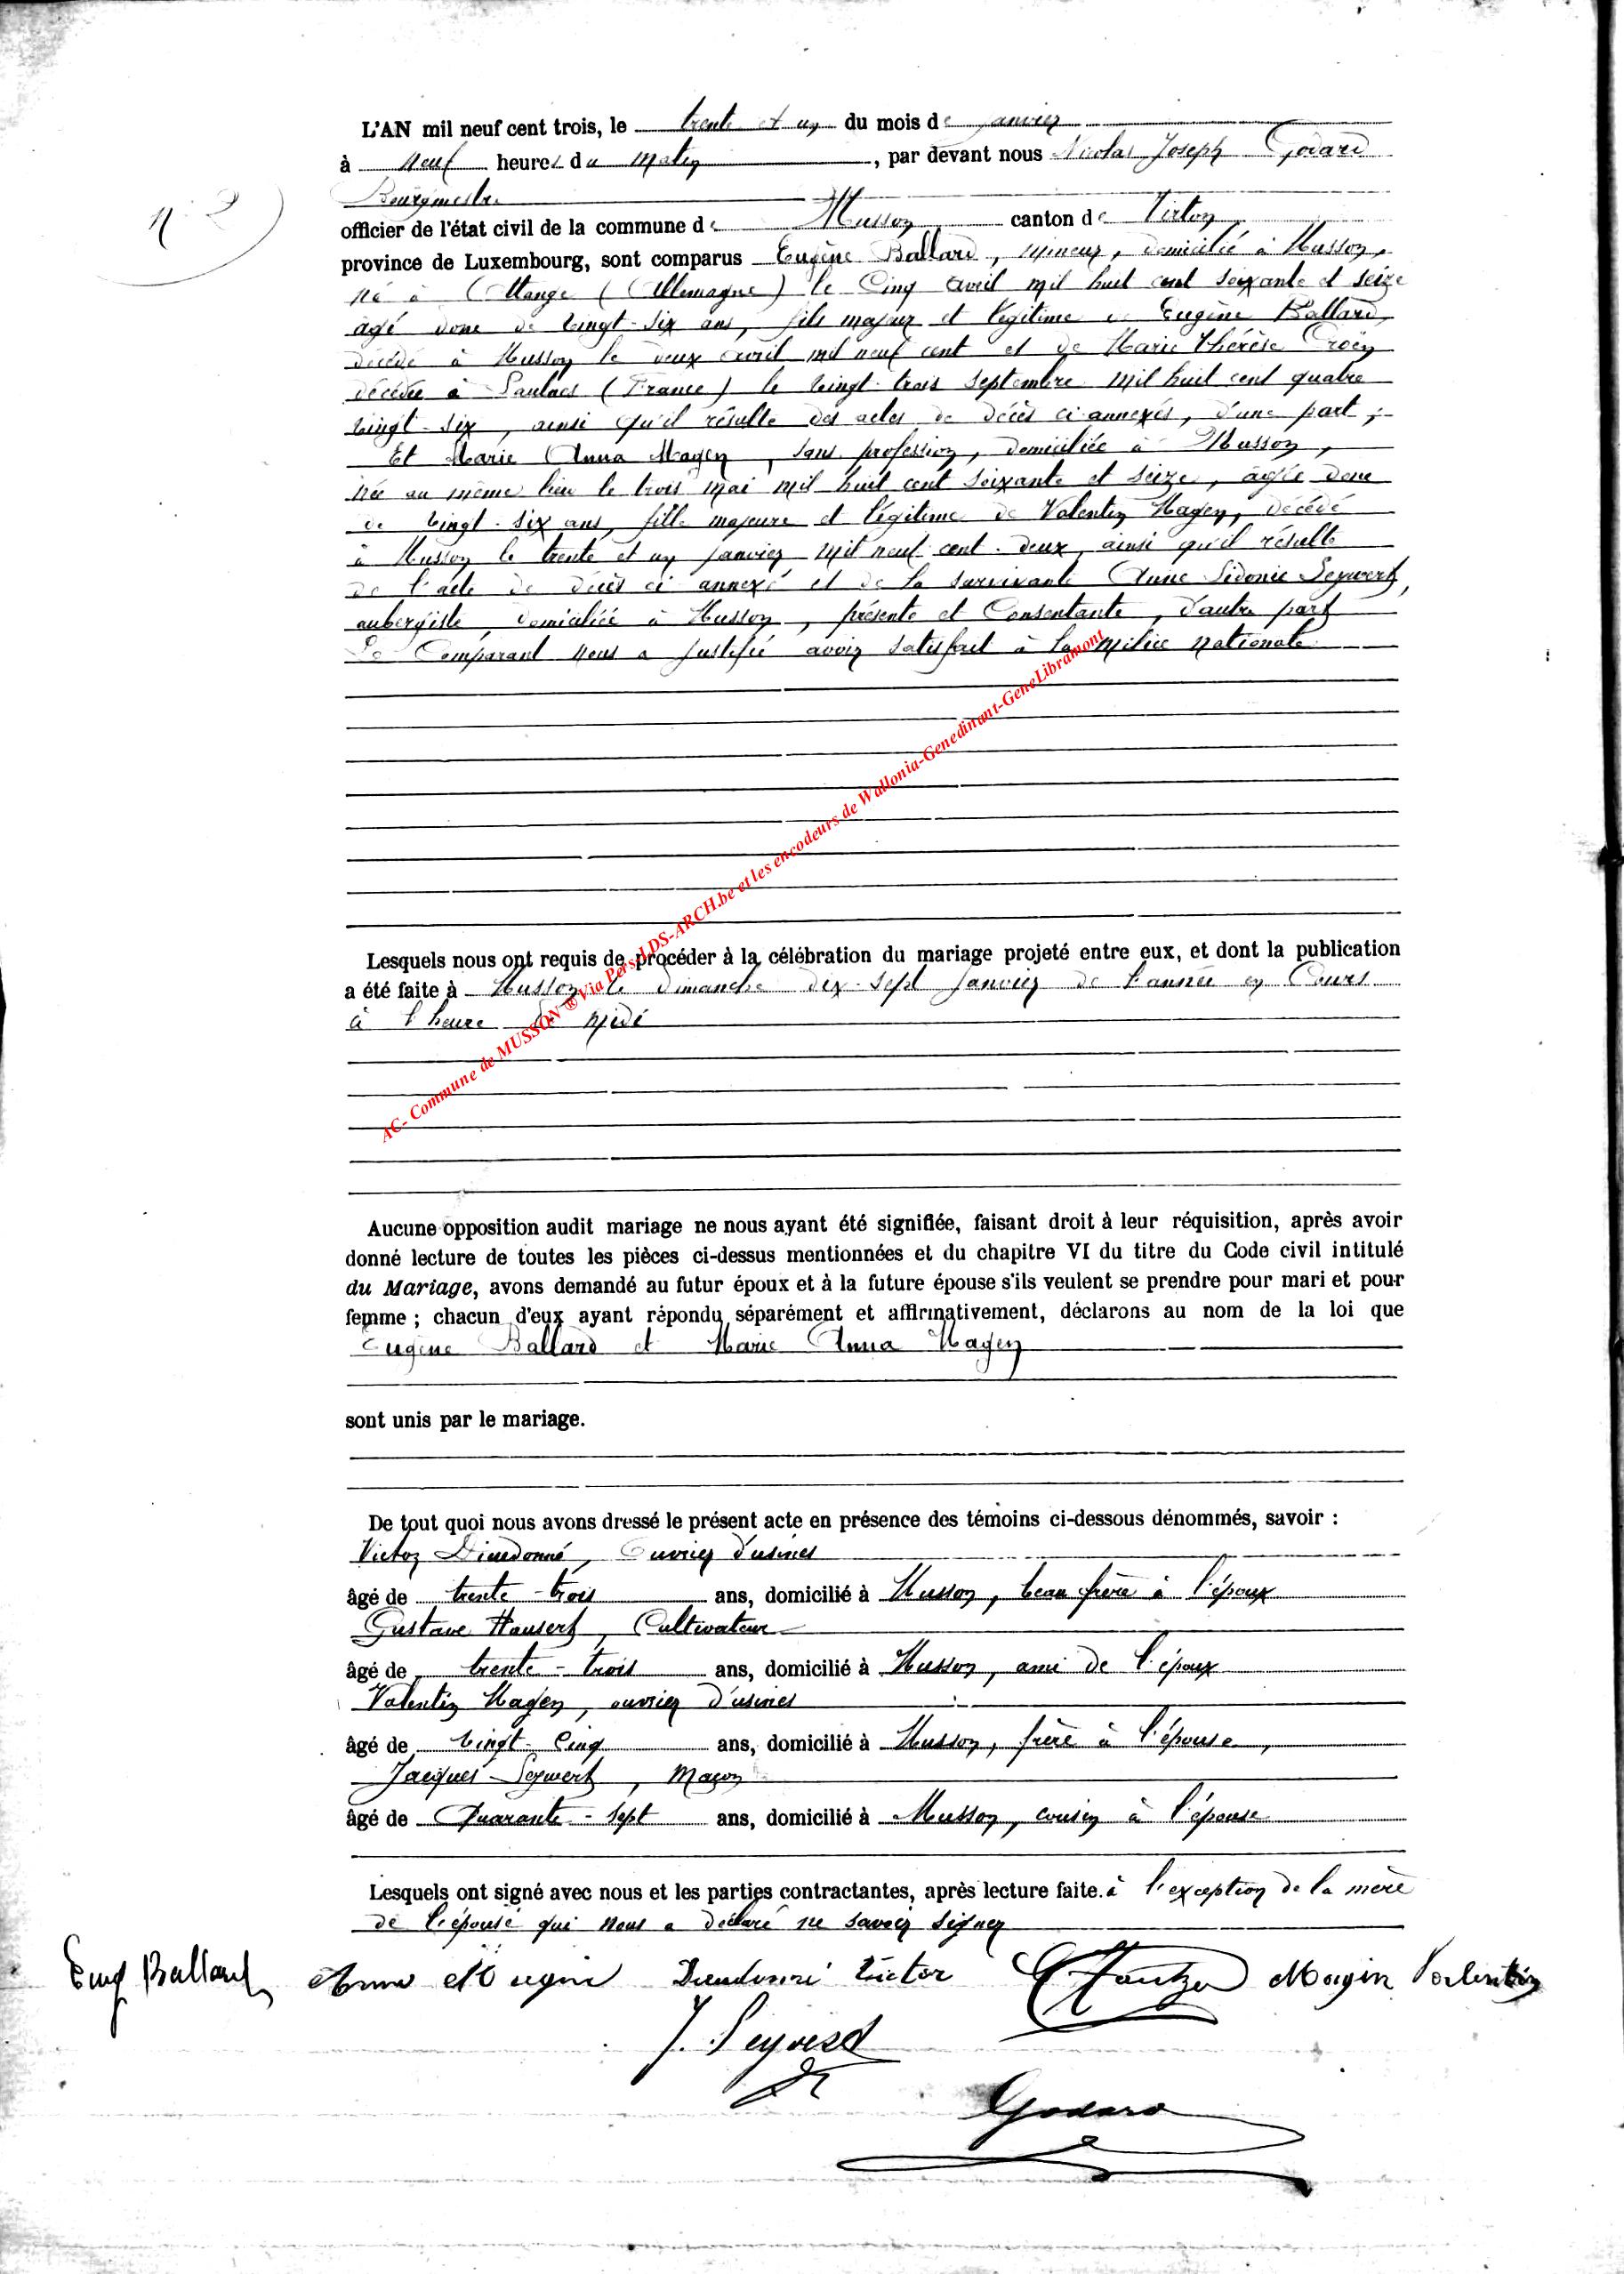 L'AN mil neuf cent trois, le trente et un du mois de janvier
à neuf heures du matin, par devant nous Nicolas Joseph Godard
Bourgmestre
N° 2
officier de l'état civil de la commune de Musson canton de Virton
province de Luxembourg, sont comparus Eugène Ballard, mineur, domicilié à Musson,
né à Ottange (Allemagne) le cinq avril mil huit cent soixante et seize
âgé donc de vingt-six ans, fils majeur et légitime de Eugène Ballard,
décédé à Musson le deux avril mil neuf cent et de Marie Thérèse
décédée à Saulnes (France) le vingt-trois septembre mil huit cent quatre
vingt-six, ainsi qu'il résulte des actes de décès ci-annexés, d'une part ;
Et Marie Anna Magen, sans profession, domiciliée à Musson,
née au même lieu le trois mai mil huit cent soixante et seize, âgée donc
de vingt-six ans, fille majeure et légitime de Valentin Magen, décédé
à Musson le trente et un janvier mil neuf cent deux, ainsi qu'il résulte
de l'acte de décès ci annexé et de la survivante Anne Sidonie Seywert,
aubergiste, domiciliée à Musson, présente et consentante, d'autre part
Le comparant nous a justifié avoir satisfait à la milice nationale
AC- Commune de MUSSON ® Via Pers-LDS-ARCH.be et les encodeurs de Wallonia-Genedinant-GeneLibramont
Lesquels nous ont requis de procéder à la célébration du mariage projeté entre eux, et dont la publication
a été faite à Musson le dimanche dix-sept janvier de l'année en cours
à l'heure de midi
Aucune opposition audit mariage ne nous ayant été signifiée, faisant droit à leur réquisition, après avoir
donné lecture de toutes les pièces ci-dessus mentionnées et du chapitre VI du titre du Code civil intitulé
du Mariage, avons demandé au futur époux et à la future épouse s'ils veulent se prendre pour mari et pour
femme ; chacun d'eux ayant répondu séparément et affirmativement, déclarons au nom de la loi que
Eugène Ballard et Marie Anna Magen
sont unis par le mariage.
De tout quoi nous avons dressé le présent acte en présence des témoins ci-dessous dénommés, savoir :
Victor Dieudonné, Ouvrier d'usines
âgé de trente-trois ans, domicilié à Musson, beau frère à l'époux
Gustave Hausert, Cultivateur
âgé de trente-trois ans, domicilié à Musson, ami de l'époux
Valentin Magen, ouvrier d'usines
âgé de vingt-cinq ans, domicilié à Musson, frère à l'épouse,
Jacques Seywert, Maçon
âgé de Quarante-sept ans, domicilié à Musson, cousin à l'épouse
Lesquels ont signé avec nous et les parties contractantes, après lecture faite. à l'exception de la mère
de l'épouse qui nous a déclaré ne savoir signer
Eug Ballard Anna Magin Dieudonné Victor Magin Valentin
J. Seywerd
Godard